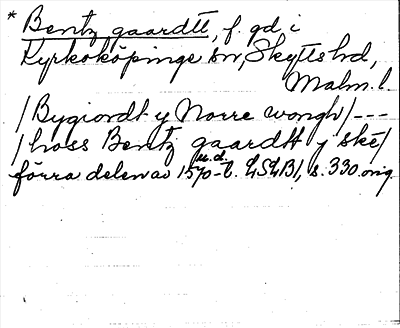 * Bentz gaardtt, f. gd i
Kyrkoköpinge sn, Skytts hd,
Malm. l.
/Bygiordt y Norre wongh/ ---
/hoss Bentz gaardtt y ske/
u.d.
förra delen av 1570-t. LSLB1, s. 330 orig.